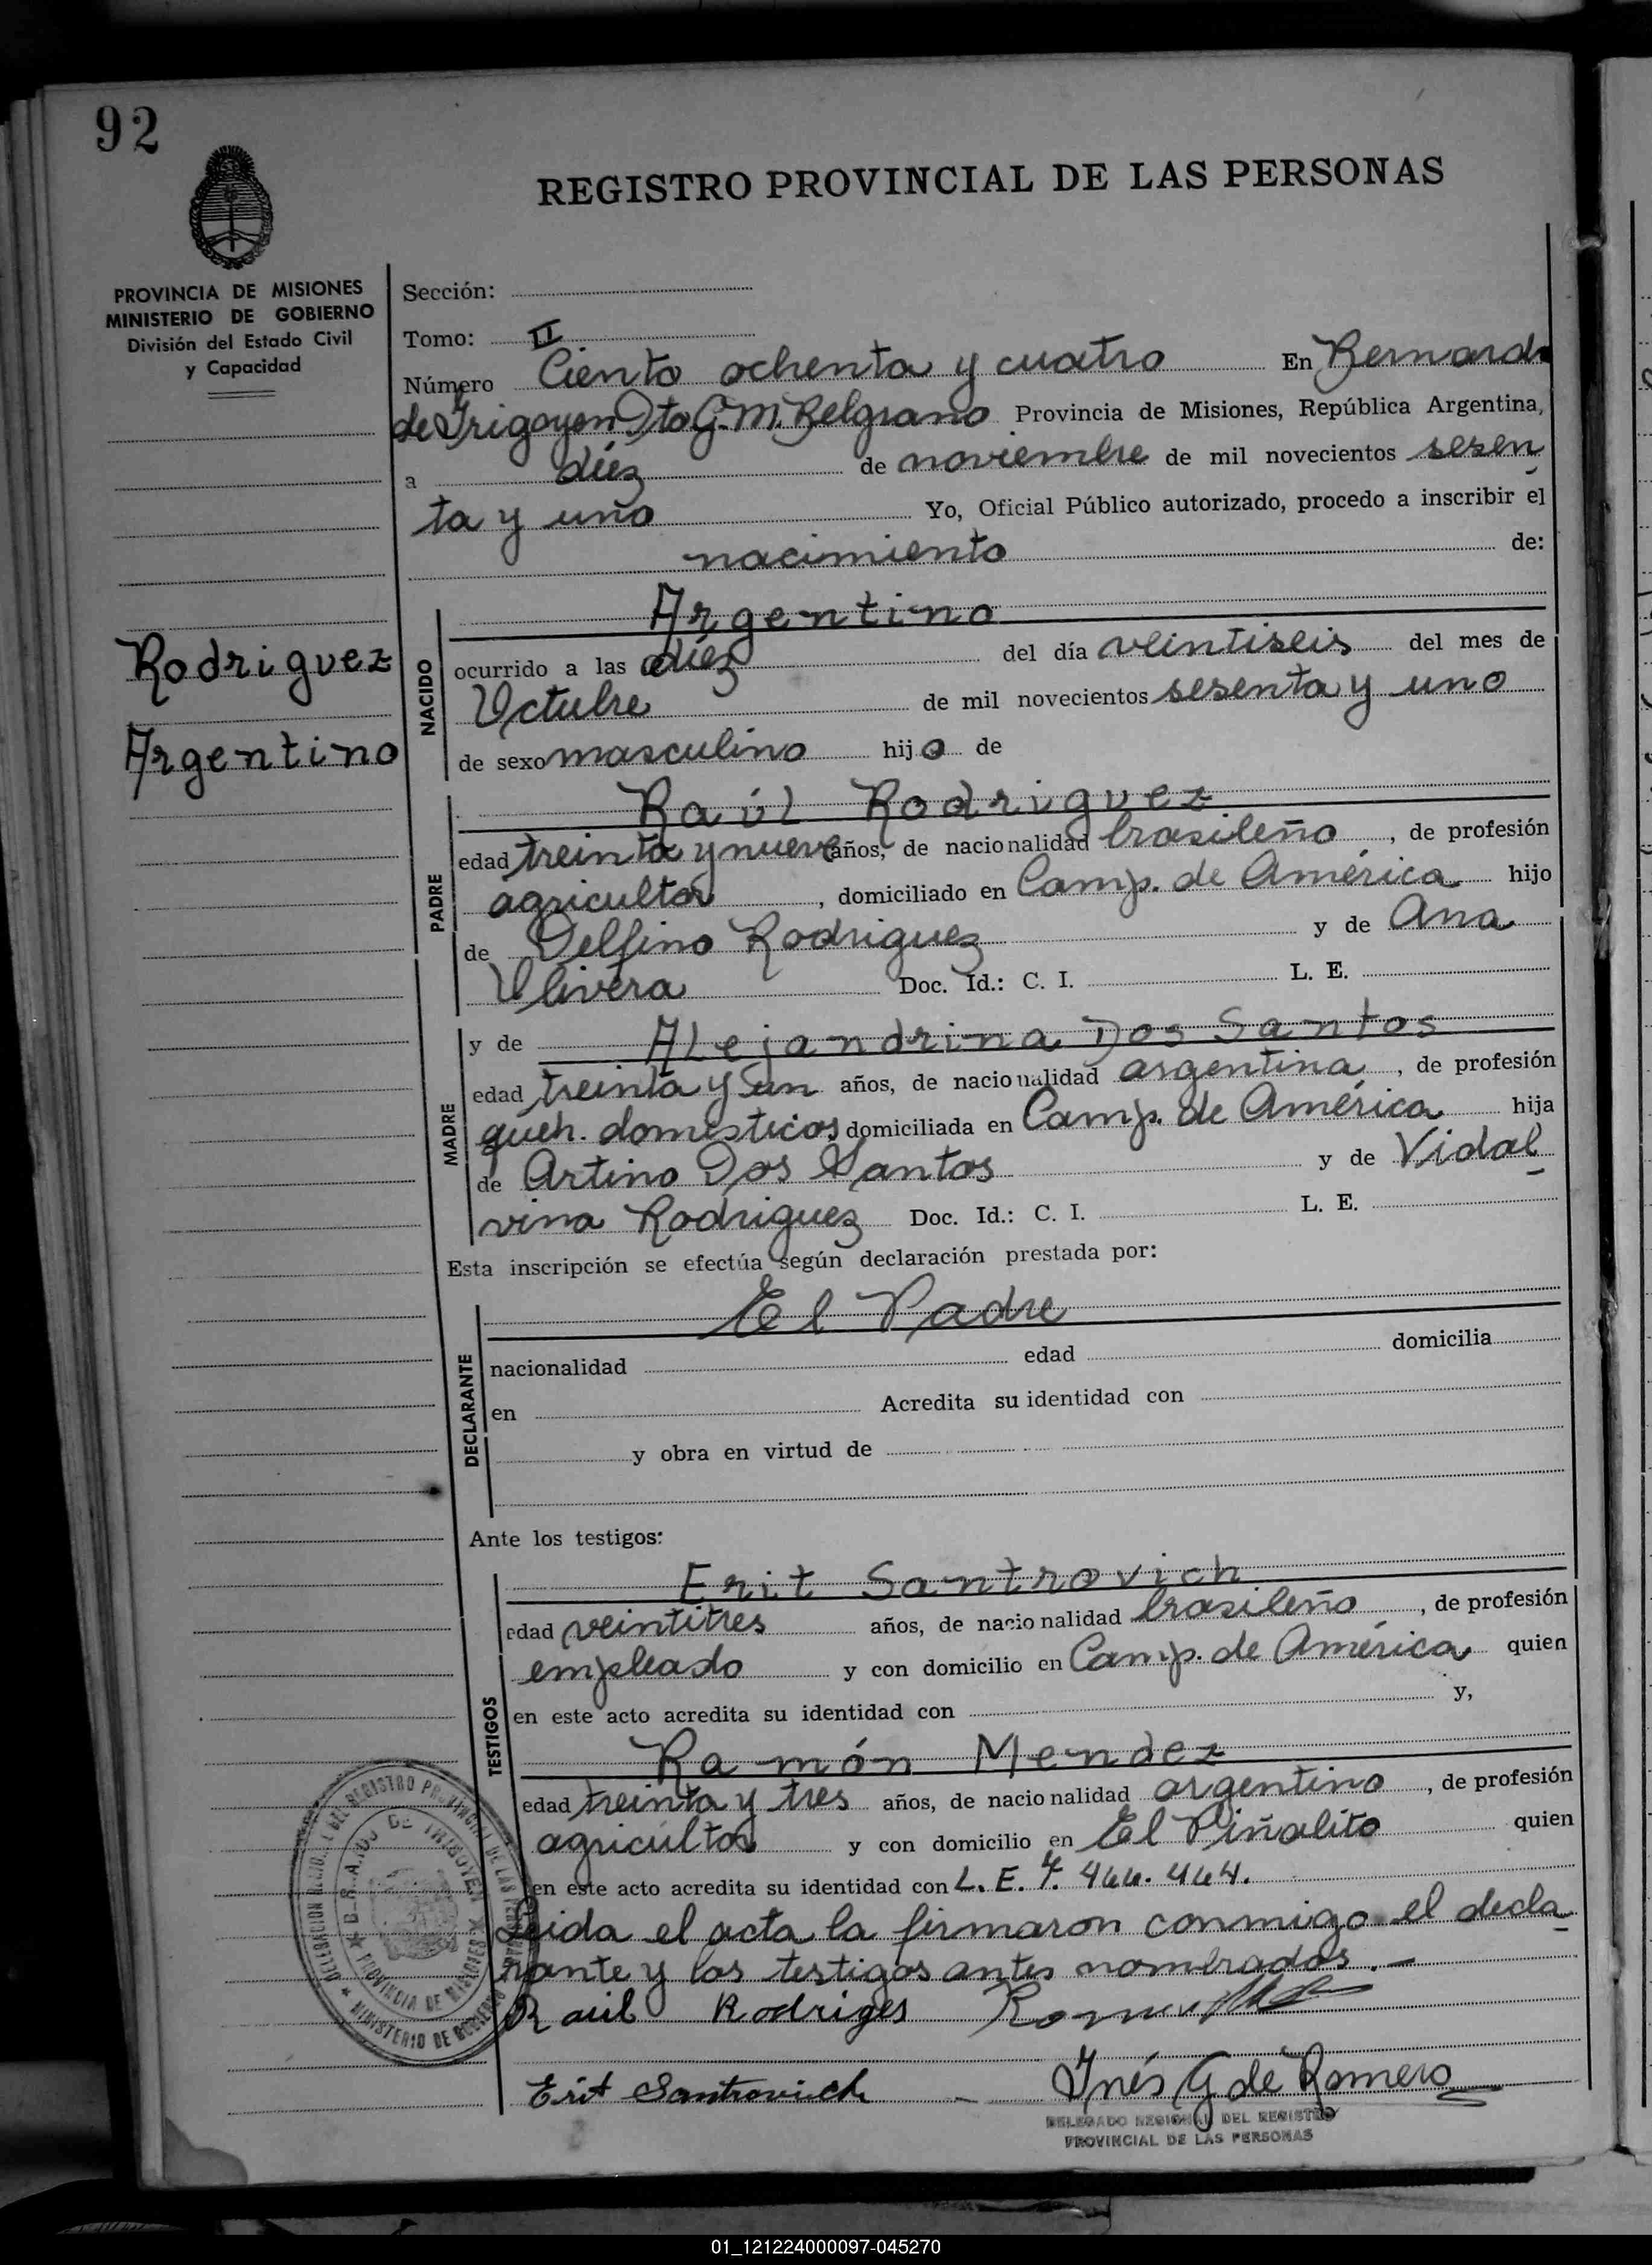 92
REGISTRO PROVINCIAL DE LAS PERSONAS
PROVINCIA DE MISIONES
MINISTERIO DE GOBIERNO
División del Estado Civil
y Capacidad
Rodriguez
Argentino
Sección:
Tomo: II
Número Ciento ochenta y cuatro En Bernardo
de Irigoyen Dto G. M. Belgrano Provincia de Misiones, República Argentina,
a diéz de noviembre de mil novecientos sesen
ta y uno Yo, Oficial Público autorizado, procedo a inscribir el
nacimiento de:
NACIDO
Argentino
ocurrido a las diéz del día veintiseis del mes de
Octubre de mil novecientos sesenta y uno
de sexo masculino hijo de
PADRE
Raúl Rodriguez
edad treinta y nueve años, de nacionalidad brasileño, de profesión
agricultor, domiciliado en Camp. de América hijo
de Delfino Rodriguez y de Ana
Olivera Doc. Id.: C. I. L. E.
MADRE
y de Alejandrina Dos Santos
edad treinta y un años, de nacionalidad argentina, de profesión
queh. domésticos domiciliada en Camp. de América hija
de Artino Dos Santos y de Vidal
vina Rodriguez Doc. Id.: C. I. L. E.
Esta inscripción se efectúa según declaración prestada por:
DECLARANTE
El Padre
nacionalidad edad domicilia
en Acredita su identidad con
y obra en virtud de
Ante los testigos:
TESTIGOS
Erit Santrovich
edad veintitres años, de nacionalidad brasileño, de profesión
empleado y con domicilio en Camp. de América quien
en este acto acredita su identidad con y,
Ramón Mendez
edad treinta y tres años, de nacionalidad argentino, de profesión
agricultor y con domicilio en El Piñalito quien
en este acto acredita su identidad con L. E. 7. 466. 464.
Leida el acta la firmaron conmigo el decla
rante y los testigos antes nombrados.-
Raúl Rodriges
Erit Santrovich
Inés G de Romero
DELEGADO REGIONAL DEL REGISTRO
PROVINCIAL DE LAS PERSONAS
01_121224000097-045270